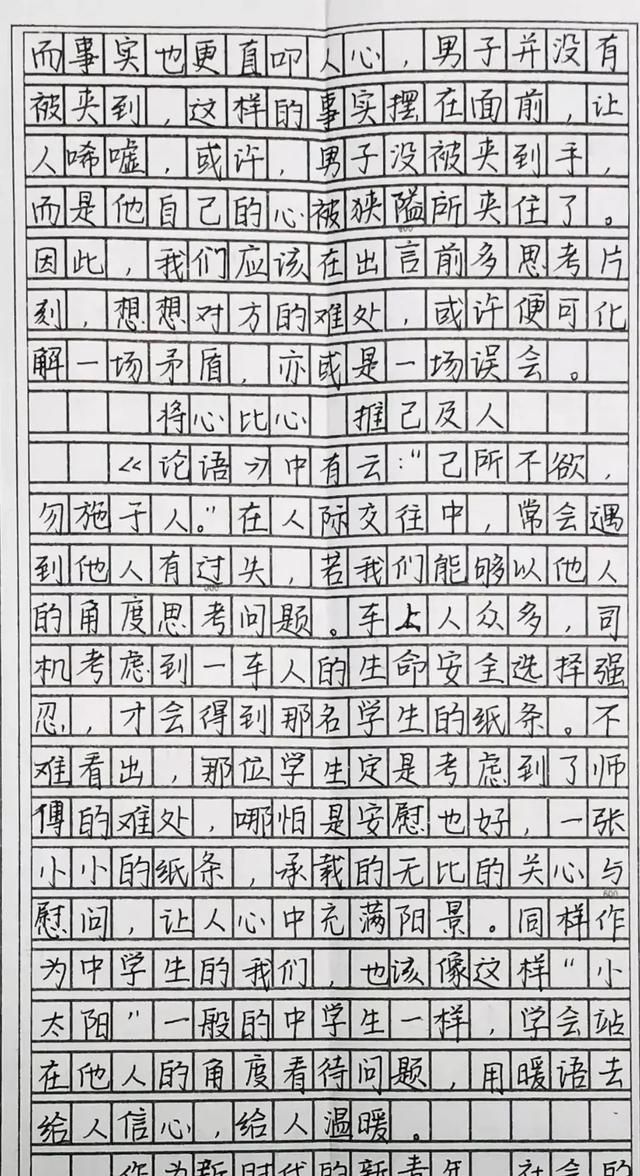 而事实也更直叩人心，男子并没有
被夹到，这样的事实摆在面前，让
人唏嘘，或许，男子没被夹到手，
而是他自己的心被狭隘所夹住了。
因此，我们应该在出言前多思考片
刻，想想对方的难处，或许便可化
解一场矛盾，亦或是一场误会。
将心比心 推己及人
《论语》中有云："己所不欲，
勿施于人。"在人际交往中，常会遇
到他人有过失，若我们能够以他人
的角度思考问题。车上人众多，司
机考虑到一车人的生命安全选择强
忍，才会得到那名学生的纸条。不
难看出，那位学生定是考虑到了师
傅的难处，哪怕是安慰也好，一张
小小的纸条，承载的无比的关心与
800
慰问，让人心中充满阳景。同样作
为中学生的我们，也该像这样"小
太阳"一般的中学生一样，学会站
在他人的角度看待问题，用暖语去
给人信心，给人温暖。
作为新时代的新青年，社会的